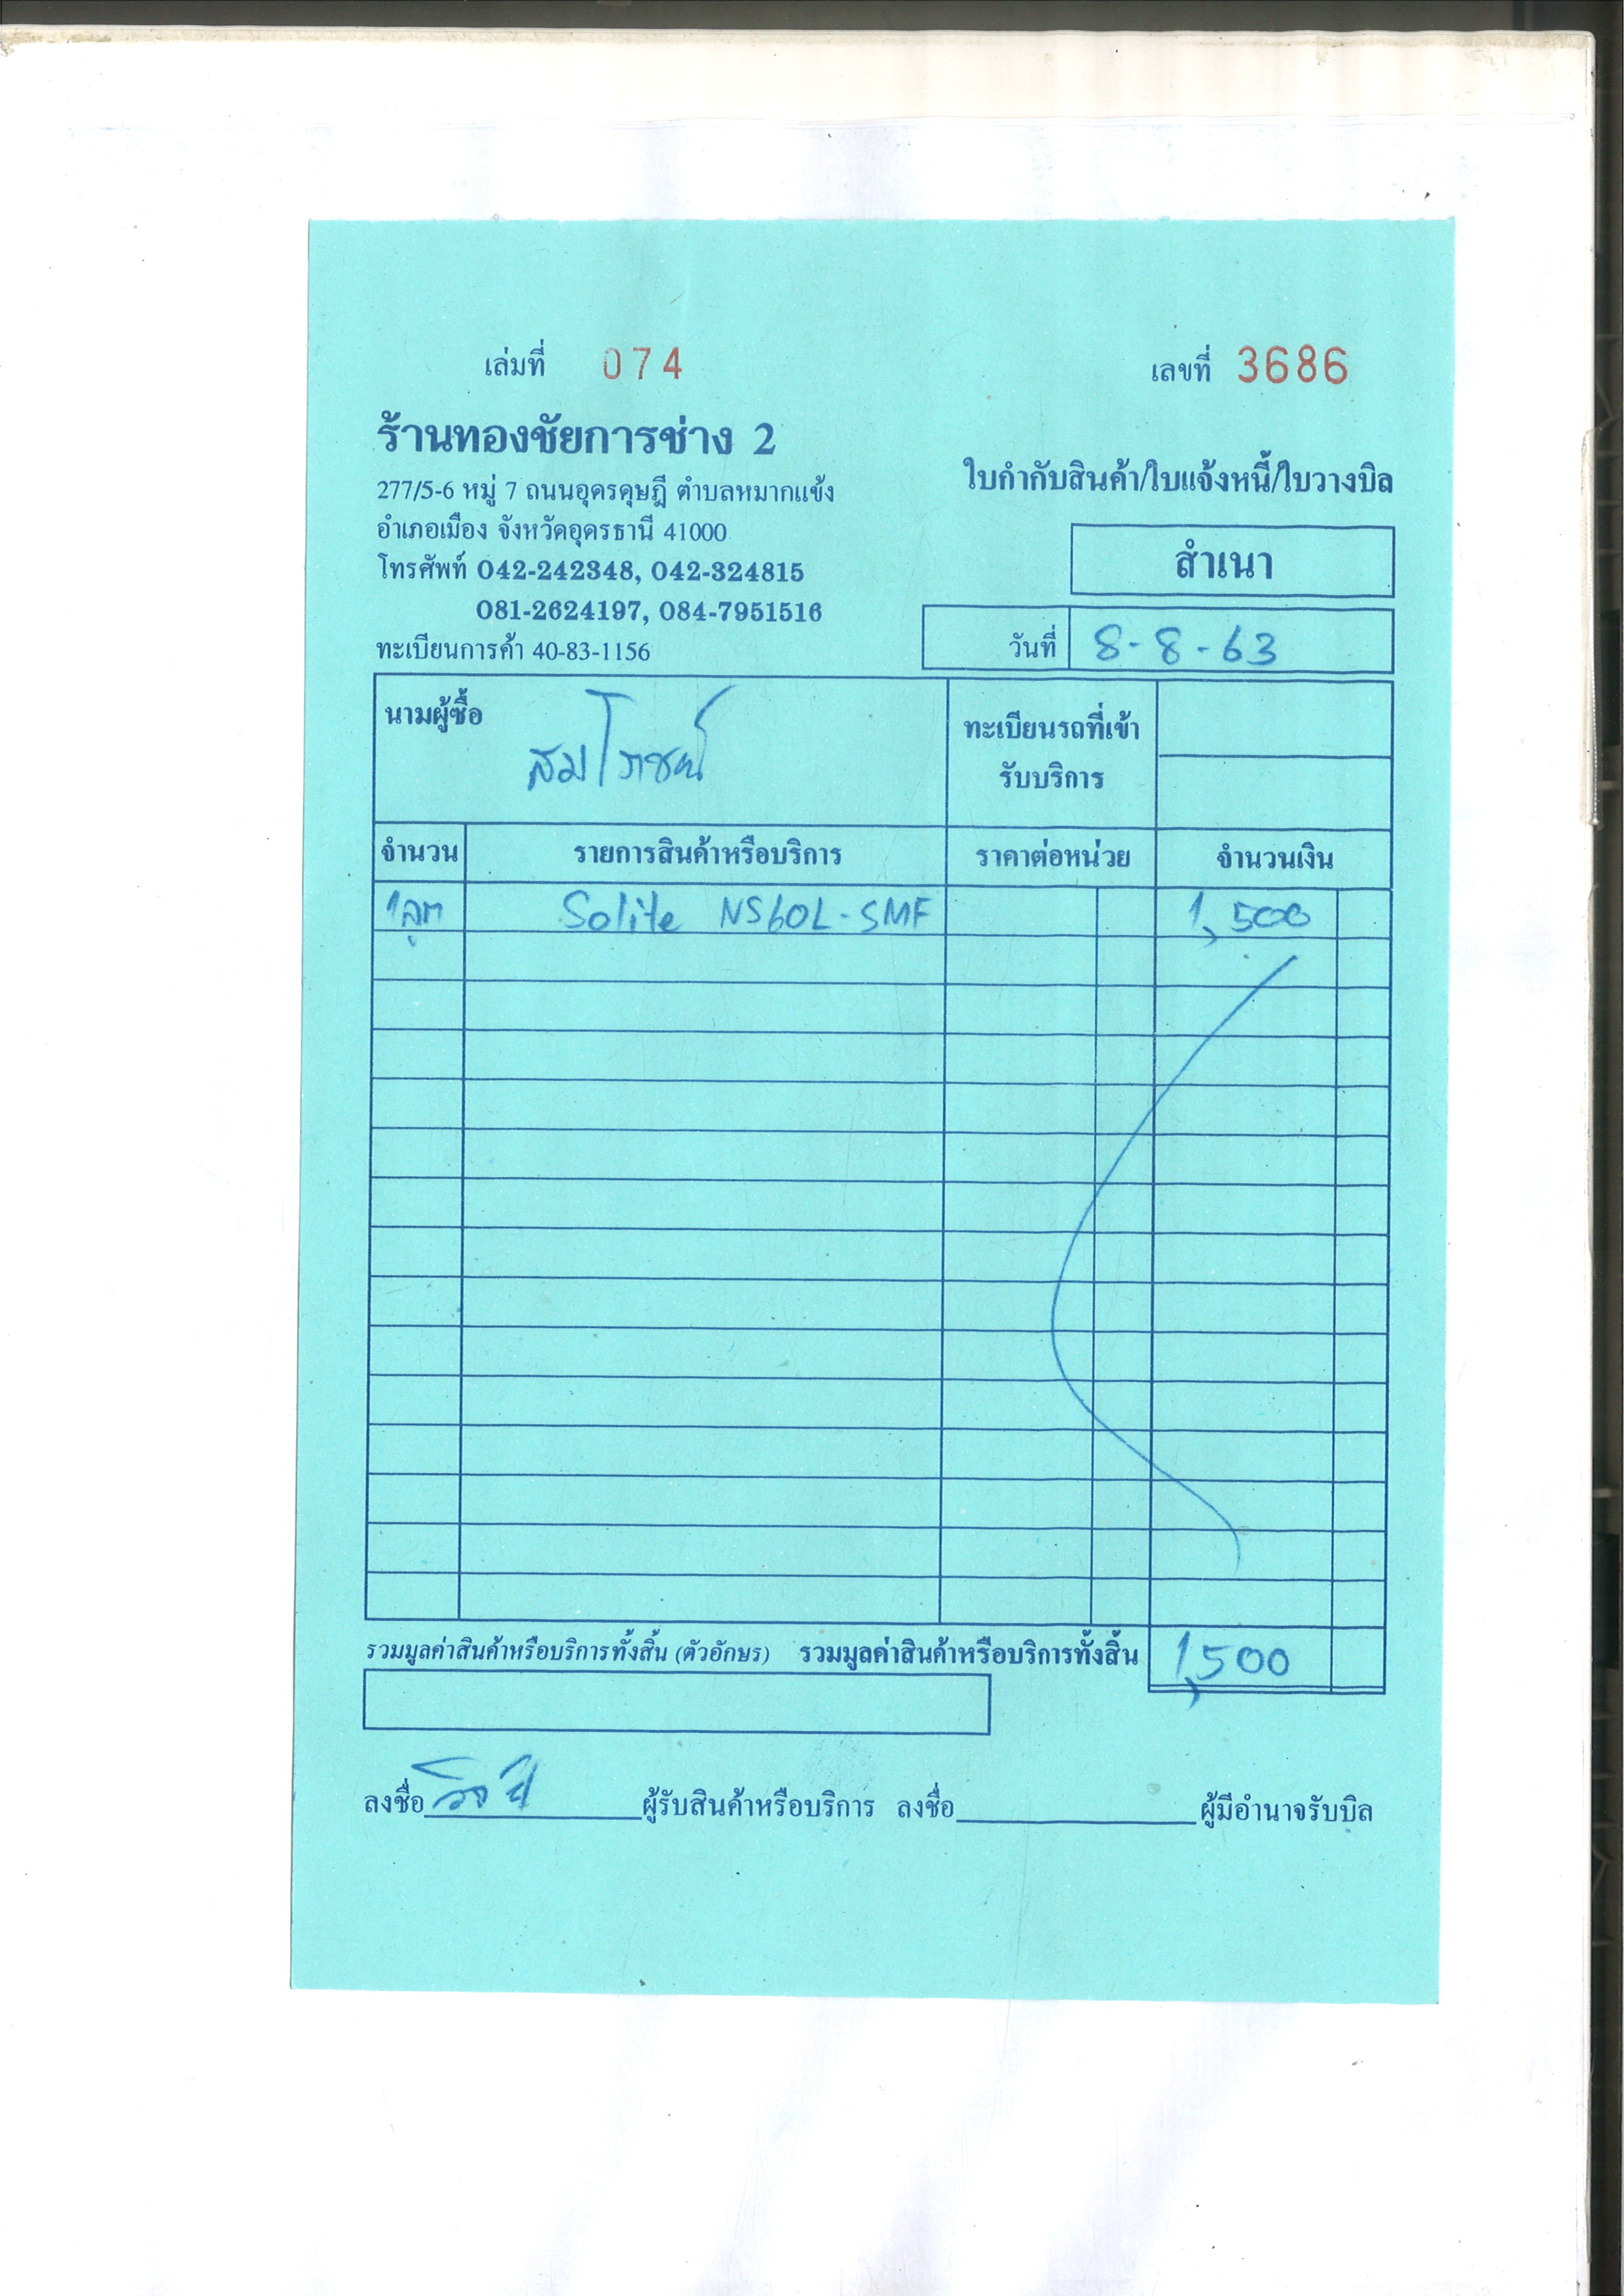 เล่มที่ 074
เลขที่ 3686
ร้านทองชัยการช่าง 2
277/5-6 หมู่ 7 ถนนอุดรดุษฎี ตำบลหมากแข้ง
อำเภอเมือง จังหวัดอุดรธานี 41000
โทรศัพท์ 042-242348, 042-324815
081-2624197, 084-7951516
ทะเบียนการค้า 40-83-1156
ใบกำกับสินค้า/ใบแจ้งหนี้/ใบวางบิล
สำเนา
วันที่ 8-8-63
นามผู้ซื้อ
ทะเบียนรถที่เข้า
รับบริการ
จำนวน รายการสินค้าหรือบริการ ราคาต่อหน่วย จำนวนเงิน
1 ลูก Solite NS60L-SMF 1,500
รวมมูลค่าสินค้าหรือบริการทั้งสิ้น (ตัวอักษร) รวมมูลค่าสินค้าหรือบริการทั้งสิ้น 1,500
ลงชื่อ ผู้รับสินค้าหรือบริการ ลงชื่อ ผู้มีอำนาจรับบิล